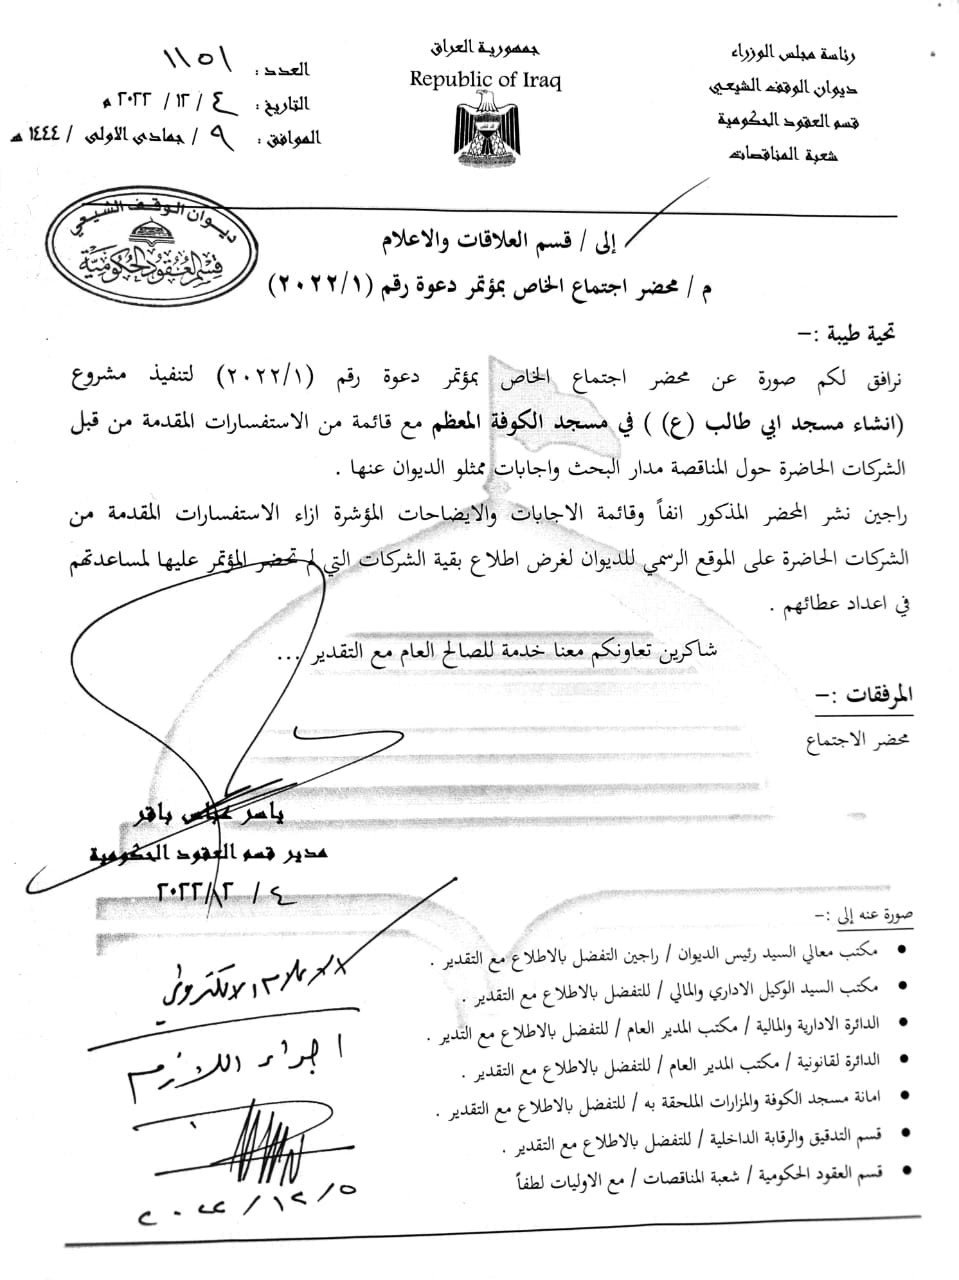 رئاسة مجلس الوزراء
ديوان الوقف الشيعي
قسم العقود الحكومية
شعبة المناقصات
جمهورية العراق
Republic of Iraq
العدد : ١١٥١
التاريخ : ٤ / ١٢ / ٢٠٢٢ م
الموافق : ٩ / جمادى الاولى / ١٤٤٤ هـ
ديوان الوقف الشيعي
قسم العقود الحكومية
إلى / قسم العلاقات والاعلام
م / محضر اجتماع الخاص بمؤتمر دعوة رقم (٢٠٢٢/١)
تحية طيبة :–
نرافق لكم صورة عن محضر اجتماع الخاص بمؤتمر دعوة رقم (٢٠٢٢/١) لتنفيذ مشروع
(انشاء مسجد ابي طالب (ع) ) في مسجد الكوفة المعظم مع قائمة من الاستفسارات المقدمة من قبل
الشركات الحاضرة حول المناقصة مدار البحث واجابات ممثلو الديوان عنها .
راجين نشر المحضر المذكور انفاً وقائمة الاجابات والايضاحات المؤشرة ازاء الاستفسارات المقدمة من
الشركات الحاضرة على الموقع الرسمي للديوان لغرض اطلاع بقية الشركات التي لم تحضر المؤتمر عليها لمساعدتهم
في اعداد عطائهم .
شاكرين تعاونكم معنا خدمة للصالح العام مع التقدير ...
المرفقات :–
محضر الاجتماع
ياسر عباس باقر
مدير قسم العقود الحكومية
٤ / ٢٠٢٢/١٢
صورة عنه إلى :–
• مكتب معالي السيد رئيس الديوان / راجين التفضل بالاطلاع مع التقدير .
• مكتب السيد الوكيل الاداري والمالي / للتفضل بالاطلاع مع التقدير .
• الدائرة الادارية والمالية / مكتب المدير العام / للتفضل بالاطلاع مع التدير .
• الدائرة لقانونية / مكتب المدير العام / للتفضل بالاطلاع مع التقدير .
• امانة مسجد الكوفة والمزارات الملحقة به / للتفضل بالاطلاع مع التقدير .
• قسم التدقيق والرقابة الداخلية / للتفضل بالاطلاع مع التقدير .
• قسم العقود الحكومية / شعبة المناقصات / مع الاوليات لطفاً
الاعلام الالكتروني
اجراء اللازم
٢٠٢٢/١٢/٥